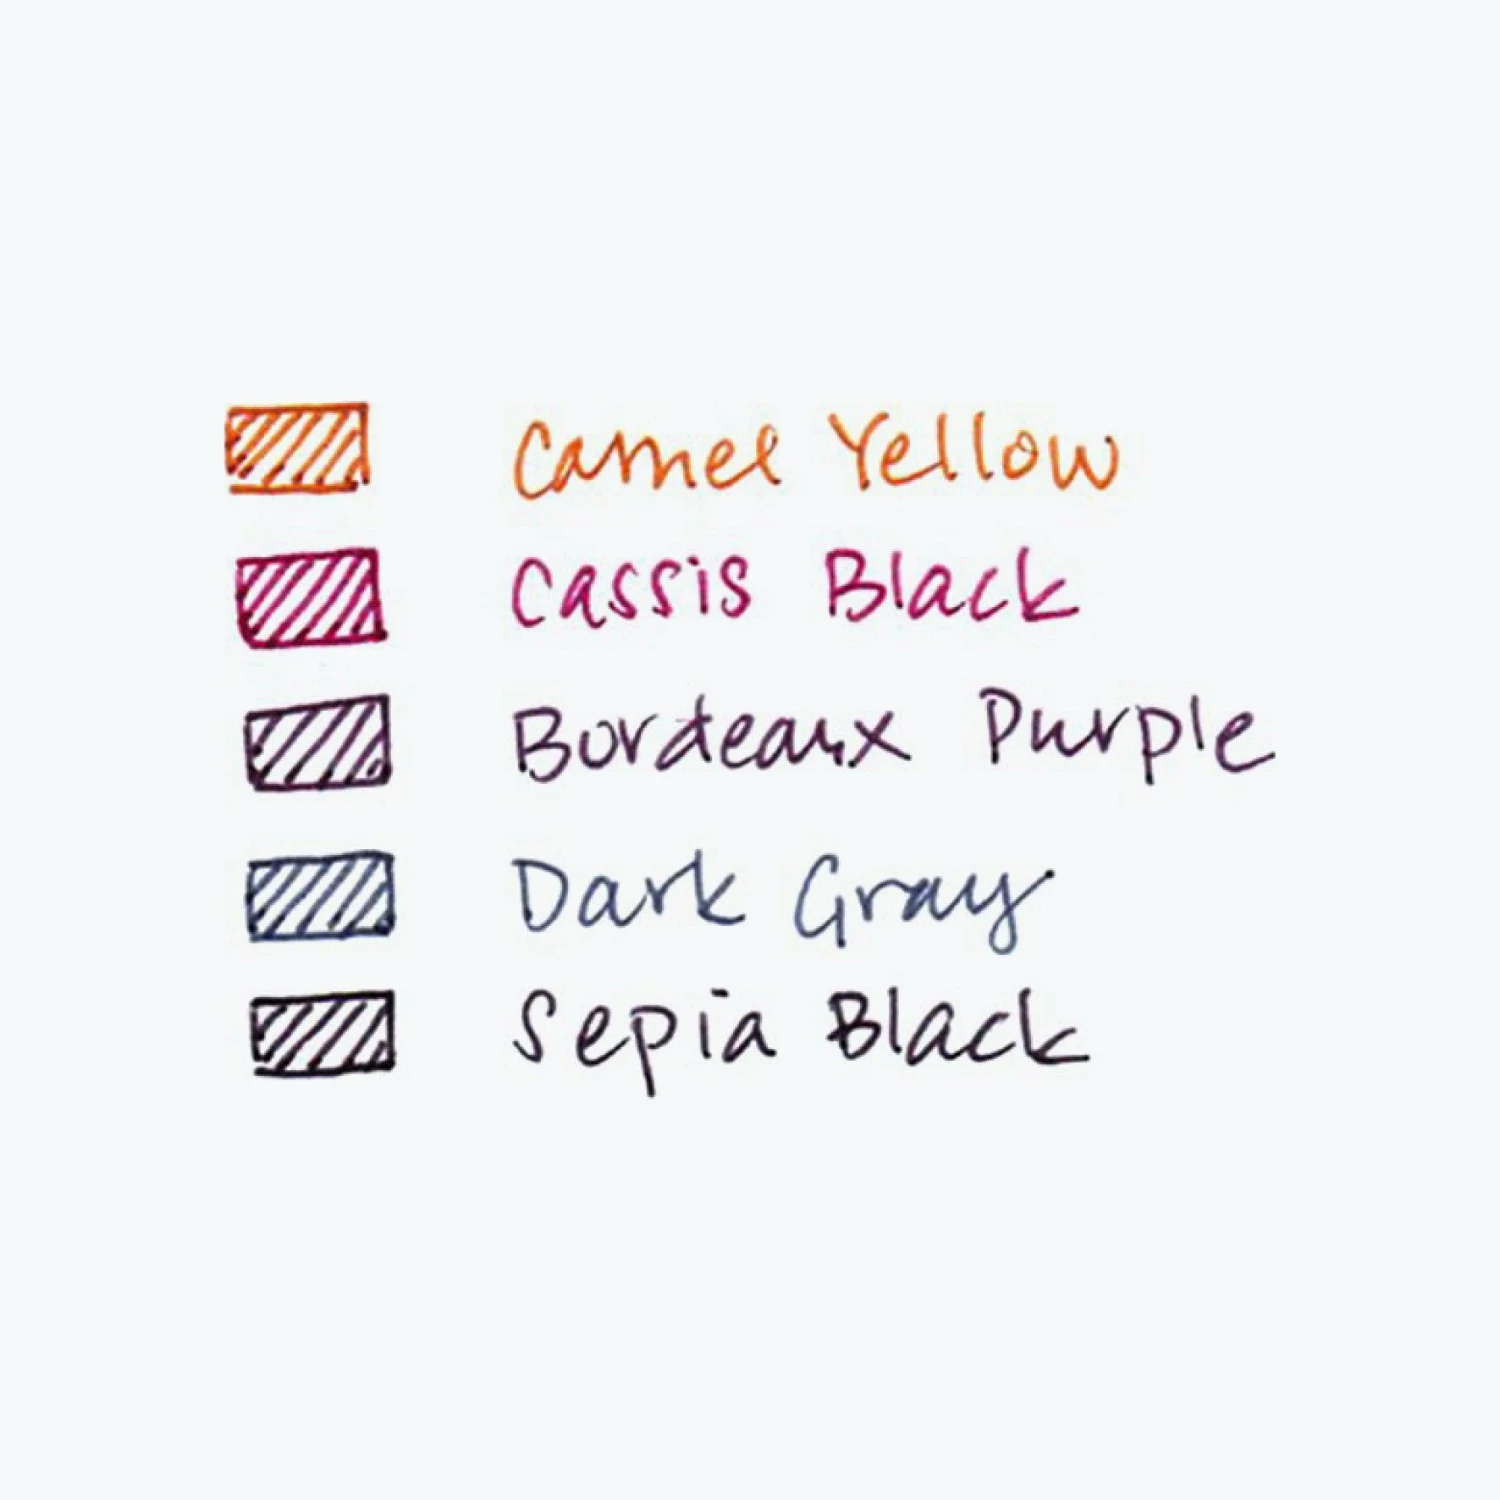 Camel Yellow
Cassis Black
Bordeaux Purple
Dark Gray
Sepia Black